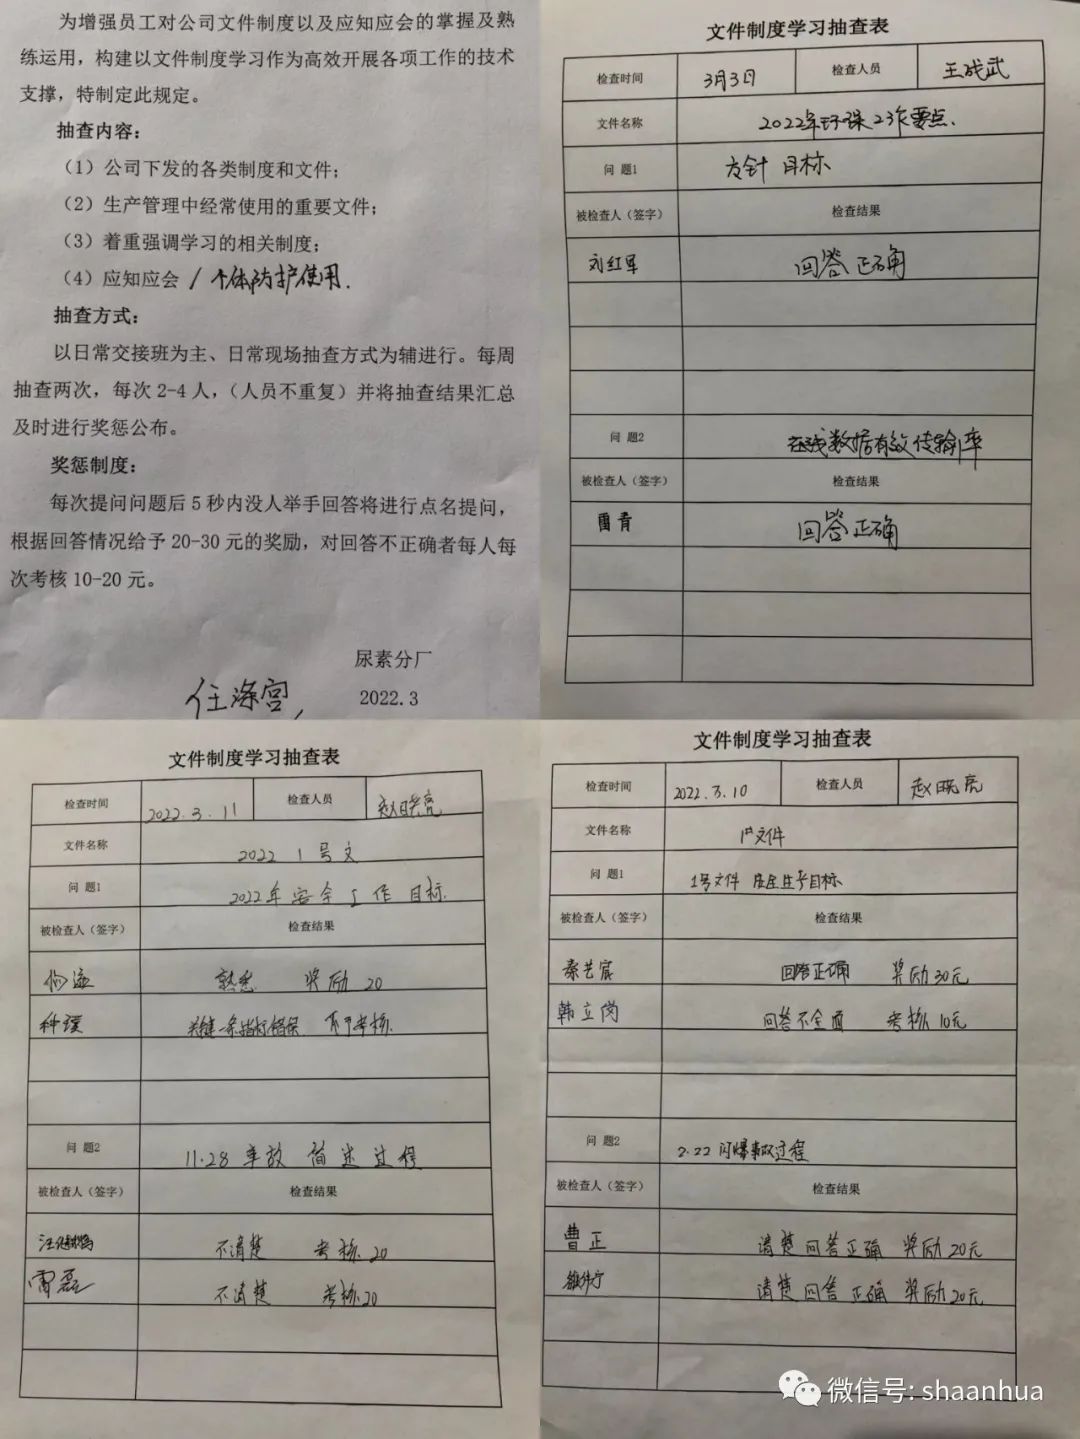 为增强员工对公司文件制度以及应知应会的掌握及熟
练运用，构建以文件制度学习作为高效开展各项工作的技术
支撑，特制定此规定。
抽查内容：
（1）公司下发的各类制度和文件；
（2）生产管理中经常使用的重要文件；
（3）着重强调学习的相关制度；
（4）应知应会 / 个体防护使用.
抽查方式：
以日常交接班为主、日常现场抽查方式为辅进行。每周
抽查两次，每次 2-4 人，（人员不重复）并将抽查结果汇总
及时进行奖惩公布。
奖惩制度：
每次提问问题后 5 秒内没人举手回答将进行点名提问，
根据回答情况给予 20-30 元的奖励，对回答不正确者每人每
次考核 10-20 元。
尿素分厂
任涤宫
2022.3
文件制度学习抽查表
检查时间 3月3日 检查人员 王战武
文件名称 2022年环保工作要点.
问 题1 方针 目标
被检查人（签字） 检查结果
刘红军 回答正确
问 题2 在线数据有效传输率
被检查人（签字） 检查结果
雷青 回答正确
文件制度学习抽查表
检查时间 2022.3.11 检查人员 赵晓亮
文件名称 2022 1号文
问 题1 2022年安全工作目标.
被检查人（签字） 检查结果
熟悉 奖励 20
考核.
问 题2 11.28 事故 简述过程
被检查人（签字） 检查结果
不清楚 考核 20
雷磊 不清楚 考核 20
文件制度学习抽查表
检查时间 2022.3.10 检查人员 赵晓亮
文件名称 1#文件
问 题1 1号文件 安全生产目标
被检查人（签字） 检查结果
秦艺宸 回答正确 奖励30元
韩立岗 回答不全面 考核10元
问 题2 2.22 闪爆事故过程
被检查人（签字） 检查结果
曹正 清楚 回答正确 奖励20元
清楚 回答正确 奖励20元
微信号: shaanhua